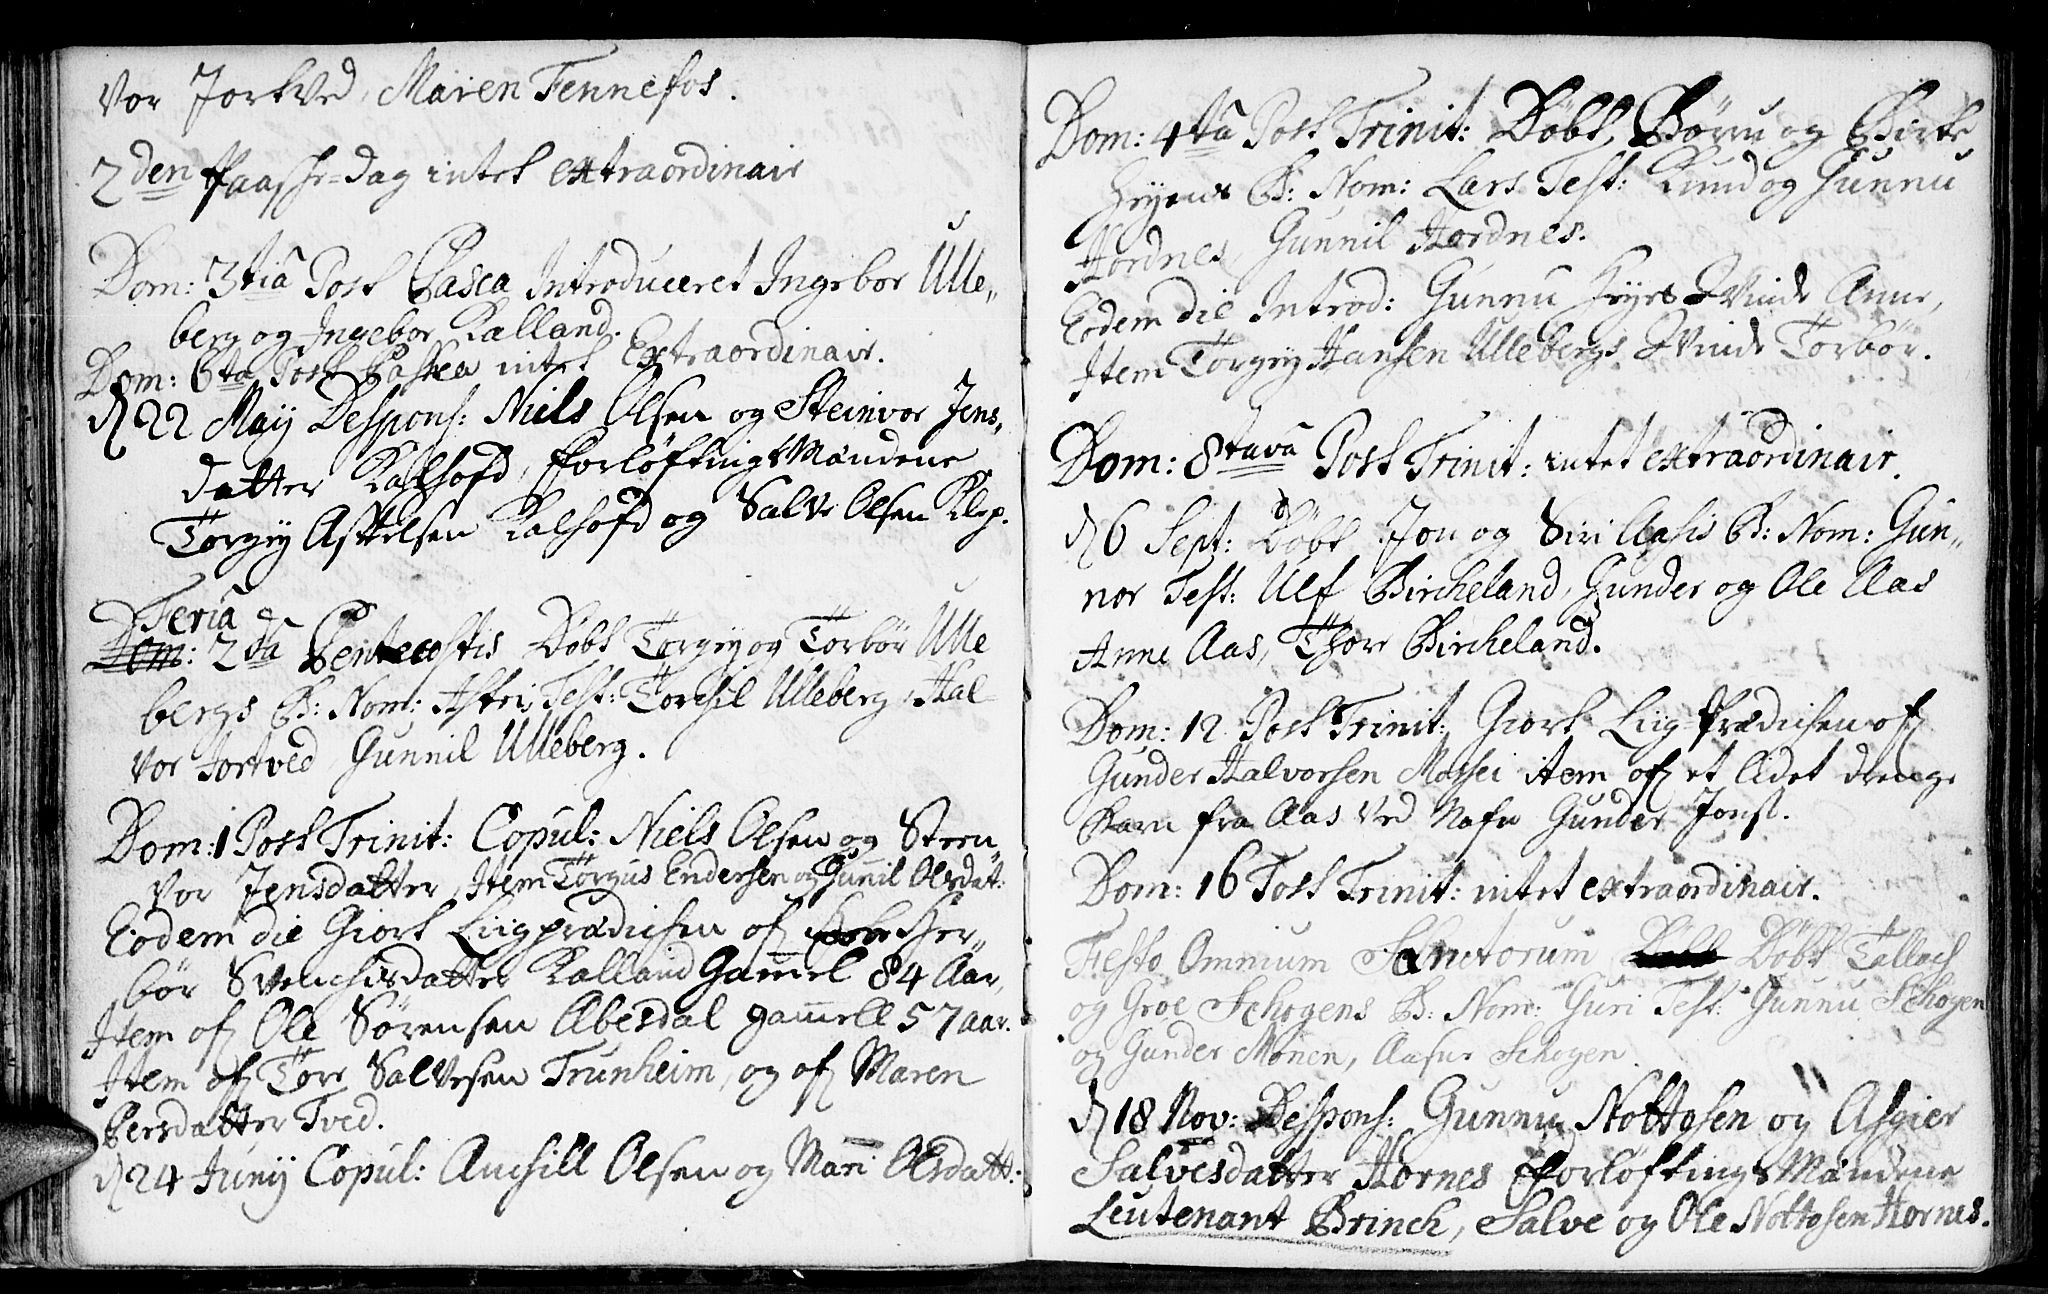 vor Jortved, Maren Fennefos.
2den Paaske-dag intet extraordinair
Dom: 3tia Post Pasca Introduceret Ingebor Ulle„
berg og Ingebor Kalland.
Dom: 6ta Post Paskea intet Extraordinair.
d 22 Maij Despons: Niels Olsen og Steinvor Jens„
datter Kalhofd, Forløftings Mændene
Torgiy Asttelsen Kalhofd og Salve Olsen Klep.
Feria
Dom: 2da Pentecostis Døbt Torgiy og Torbør Ulle
bergs B: Nom: Astri, Test: Torchil Ulleberg, Hal
vor Jortved Gunnil Ulleberg.
Dom: 1 Post Trinit: Copul: Niels Olsen og Steen
vor Jensdatter, Item Torgus Endersen og Gunil Olsdat:
Eodem die Giort Liigprædiken of Her„
bør Svenchisdatter Kalland Gamel 84 Aar,
Item of Ole Sørensen Abesdal gamell 57 aar.
Item of Tore Salvesen Trunheim, og of Maren
Persdatter Tved.
d 24 Junij Copul: Anchill Olsen og Mari Olsdatt:
Dom: 4ta Post Trinit: Døbt, Børu og Birte
Høyens B: Nom: Lars Test: Knud og Gunnu
Hordnes, Gunnil Hordnes.
Eodem die Introd: Gunnu Høyes Qvinde Anne,
Item Torgiy Hansen Ullebergs Qvinde Torbør.
Dom: 8tava Post Trinit: intet extraordinair.
d 6 Sept: Døbt Jon og Siri Aasis B: Nom: Gun„
nor Test: Ulf Bircheland, Gunder og Ole Aas
Anne Aas, Thore Bircheland.
Dom: 12 Post Trinit: Giort Liig-Prædichen of
Gunder Halvorsen Mossei item of et lidet drenge
Barn fra Aas ved Nafn Gunder Jonss.
Dom: 16 Post Trinit: intet extraordinair.
Festo Omnium Sanctorum Døbt Døbt Tallach
og Groe Schogens B: Nom: Guri Test: Gunnu Schogen
og Gunder Monen, Aasne Schogen.
d 18 Nov: Despons: Gunnu Nottosen og Asgier
Salvesdatter Hornes Forløftings Mændene
Leutenant Brinch, Salve og Ole Nottosen Hornes.